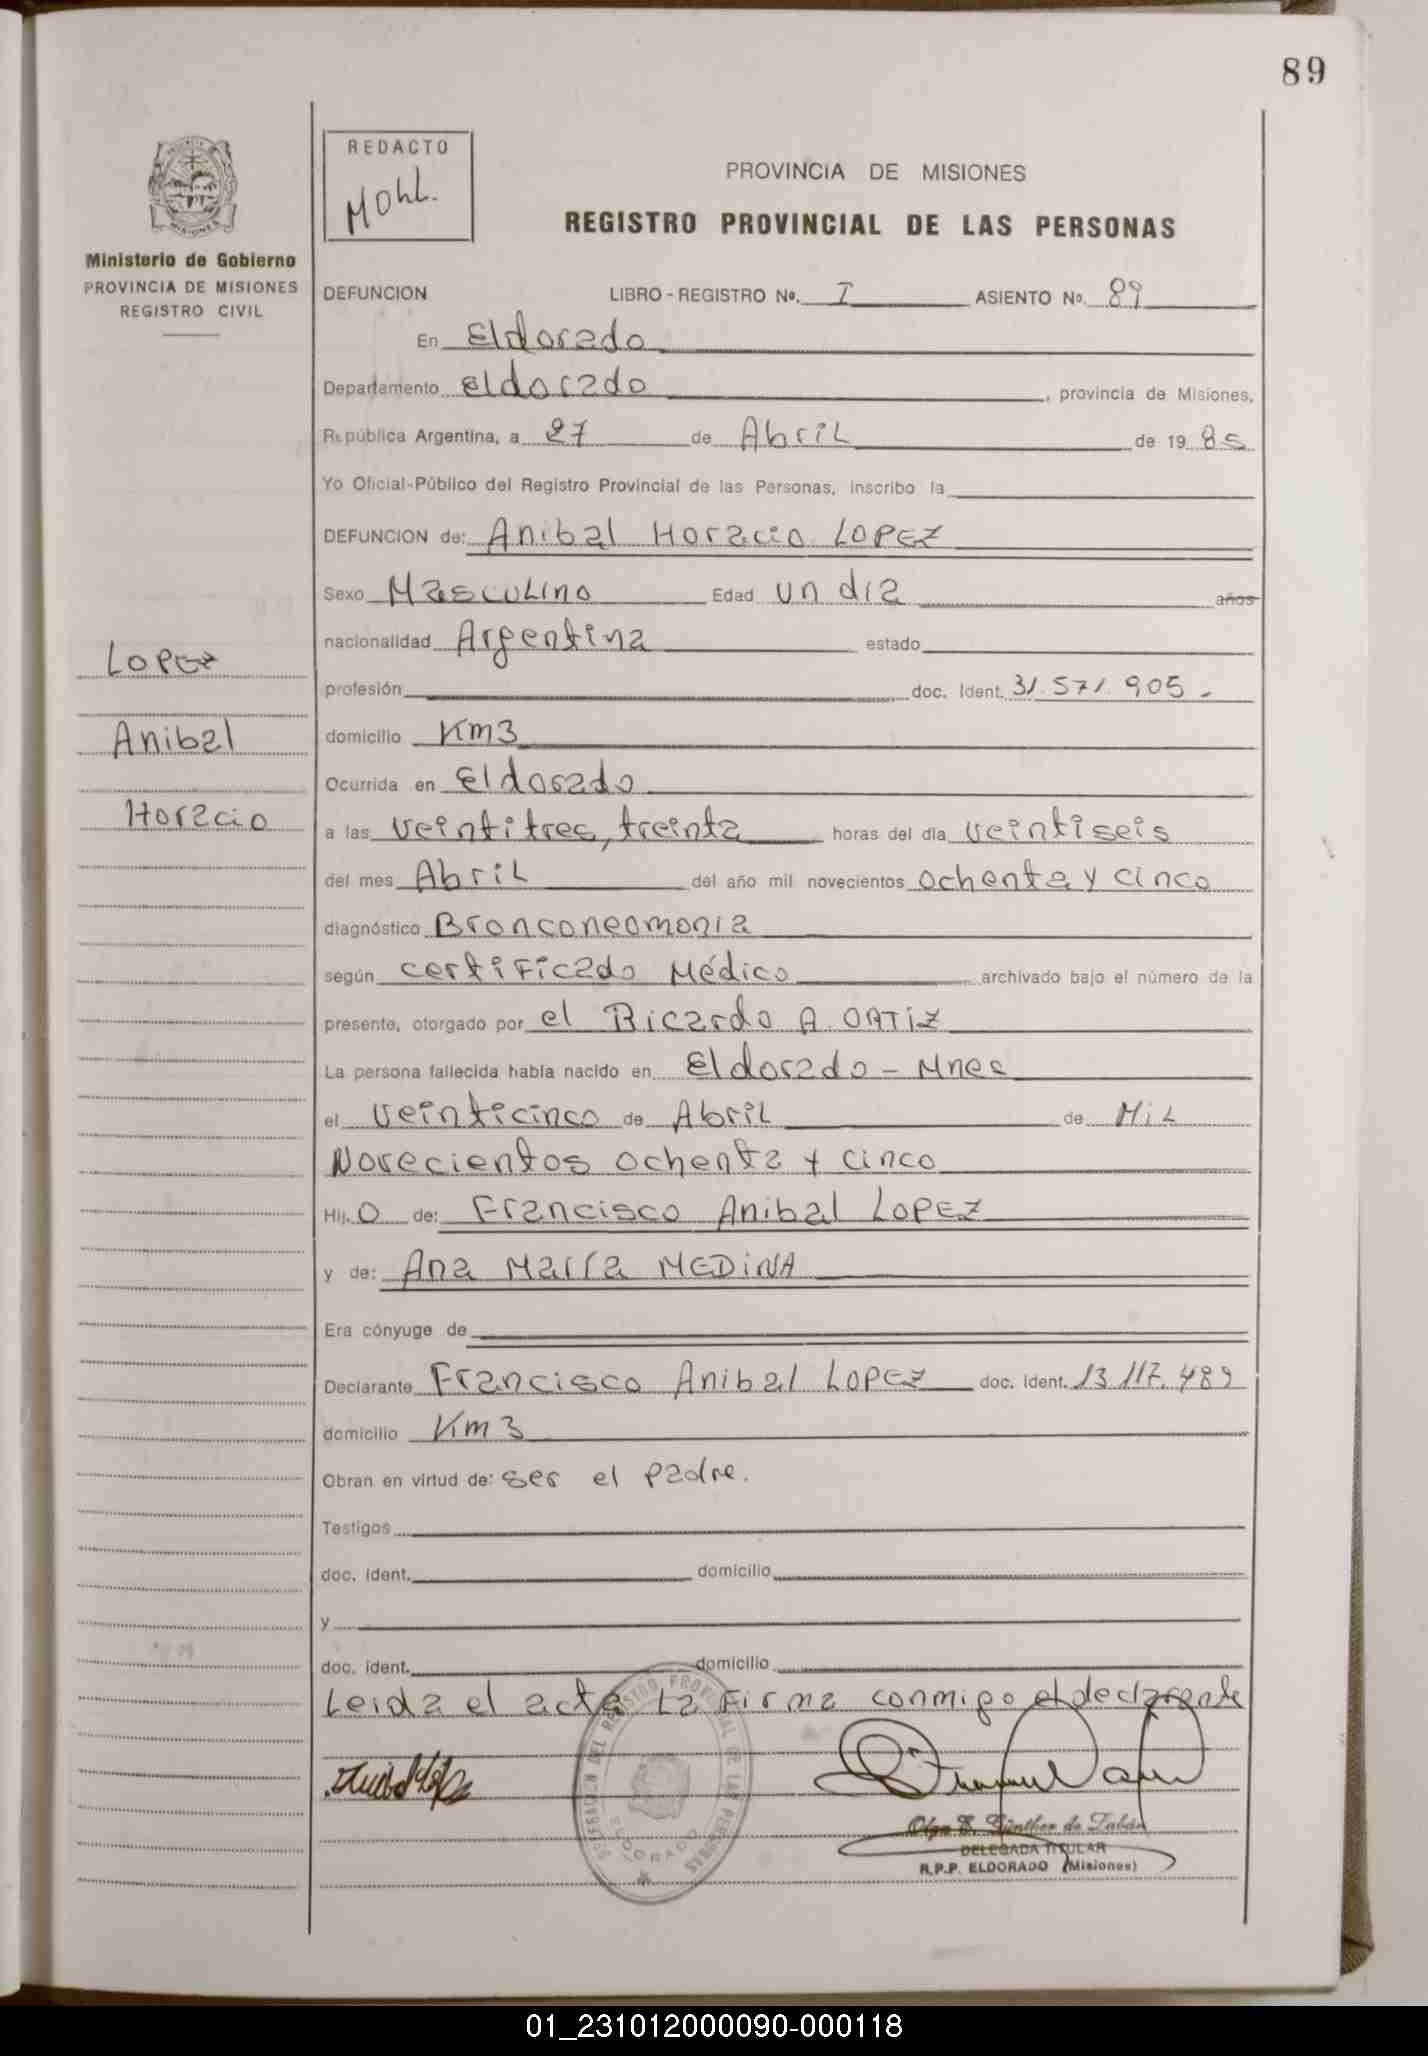 89
REDACTO
Mohl.
PROVINCIA DE MISIONES
REGISTRO PROVINCIAL DE LAS PERSONAS
Ministerio de Gobierno
PROVINCIA DE MISIONES
REGISTRO CIVIL
DEFUNCION LIBRO - REGISTRO Nº. I ASIENTO Nº. 89
En Eldorado
Departamento eldorado, provincia de Misiones,
República Argentina, a 27 de Abril de 19 85
Yo Oficial-Público del Registro Provincial de las Personas, inscribo la
DEFUNCION de: Anibal Horacio LOPEZ
Sexo Masculino Edad un dia años
nacionalidad Argentina estado
profesión doc. ident. 31.571.905.-
domicilio Km3
Ocurrida en Eldorado
a las veintitres, treinta horas del día veintiseis
del mes Abril del año mil novecientos ochenta y cinco
diagnóstico Bronconeomonia
según certificado Médico archivado bajo el número de la
presente, otorgado por el Ricardo A. ORTIZ
La persona fallecida había nacido en Eldorado - Mnes
el veinticinco de Abril de Mil
Novecientos ochenta y cinco
Hij o de: Francisco Anibal LOPEZ
y de: Ana María MEDINA
Era cónyuge de
Declarante Francisco Anibal LOPEZ doc. ident. 13.117.489
domicilio Km 3
Obran en virtud de: ser el padre.
Testigos
doc. ident. domicilio
y
doc. ident. domicilio
Leida el acta La Firma conmigo el declarante
LOPEZ
Anibal
Horacio
DELEGACION DEL REGISTRO PROVINCIAL DE LAS PERSONAS
ELDORADO
DELEGADA TITULAR
R.P.P. ELDORADO (Misiones)
01_231012000090-000118